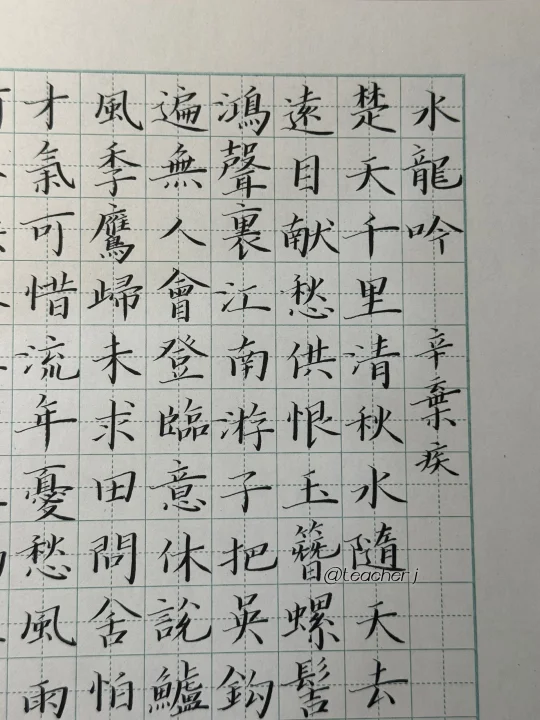 水龍吟 辛棄疾
楚天千里清秋水隨天去
遠目献愁供恨玉簪螺髻
鴻聲裏江南游子把吳鈎
遍無人會登臨意休說鱸
風季鷹歸未求田問舍怕
才氣可惜流年憂愁風雨
@teacher j